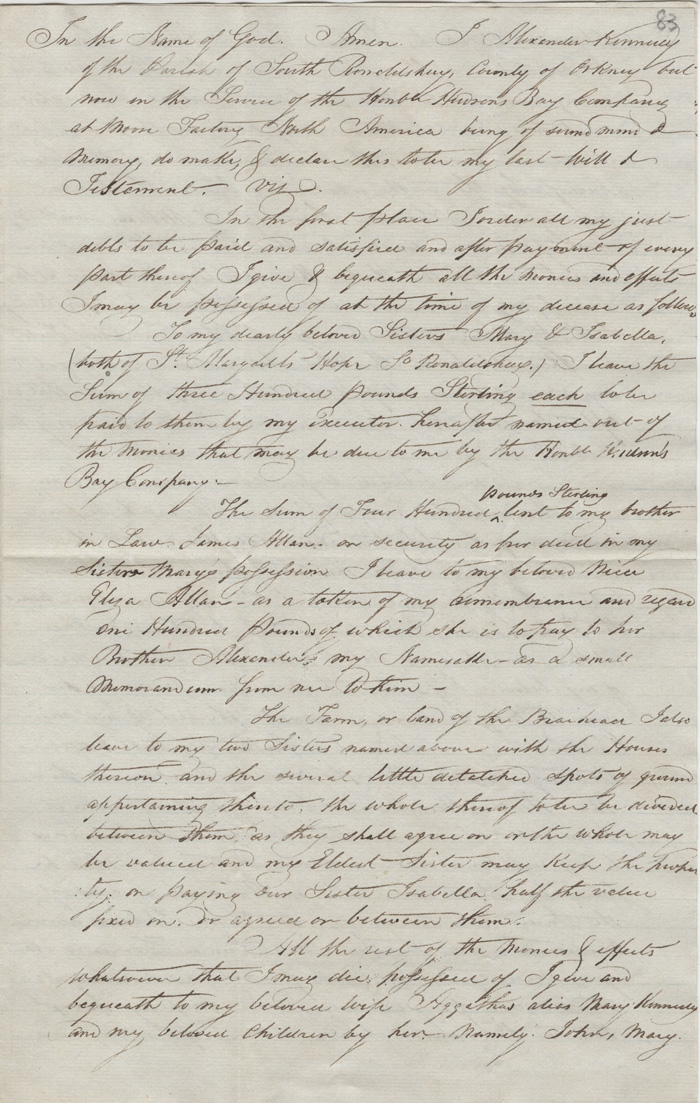 83
In the Name of God. Amen. I Alexander Kennedy
of the Parish of South Ronaldshay, County of Orkney but
now in the Service of the Honble Hudsons Bay Company
at Moose Factory North America being of sound mind &
Memory, do make, & declare this to be my last Will &
Testement. viz.
In the first place I order all my just
debts to be paid and satisfied and after payment of every
part thereof I give & bequeath all the monies and effects
I may be possessed of at the time of my decease as follows
To my dearly beloved Sisters Mary & Isabella,
(both of St. Margrets Hope So Ronaldshay,) I leave the
Sum of three Hundred pounds Sterling each to be
paid to them by my Executor hereafter named out of
the monies that may be due to me by the Honble Hudson's
Bay Company.
pounds Sterling
The Sum of Four Hundred ^ lent to my brother
in Law James Allan on security as per deed in my
Sisters Marys possession I leave to my beloved Niece
Eliza Allan - as a token of my remembrance and regard
One Hundred Pounds of which she is to pay to her
Brother Alexander, my Namesake - as a small
Memorandum from me to him -
The Farm, or land of the I also
leave to my two Sisters named above with the Houses
thereon and the several little detatched spots of ground
appertaining thereto. the whole thereof to be divided
between them as they shall agree on or the whole may
be valued and my Eldest Sister may keep the proper
:ty; on paying our Sister Isabella half the value
fixed on. or agreed on between them.
All the rest of the monies & effects
whatsoever that I may die, possessed of I give and
bequeath to my beloved wife Aggathas alias Mary Kennedy
and my beloved Children by her Namely. John, Mary.